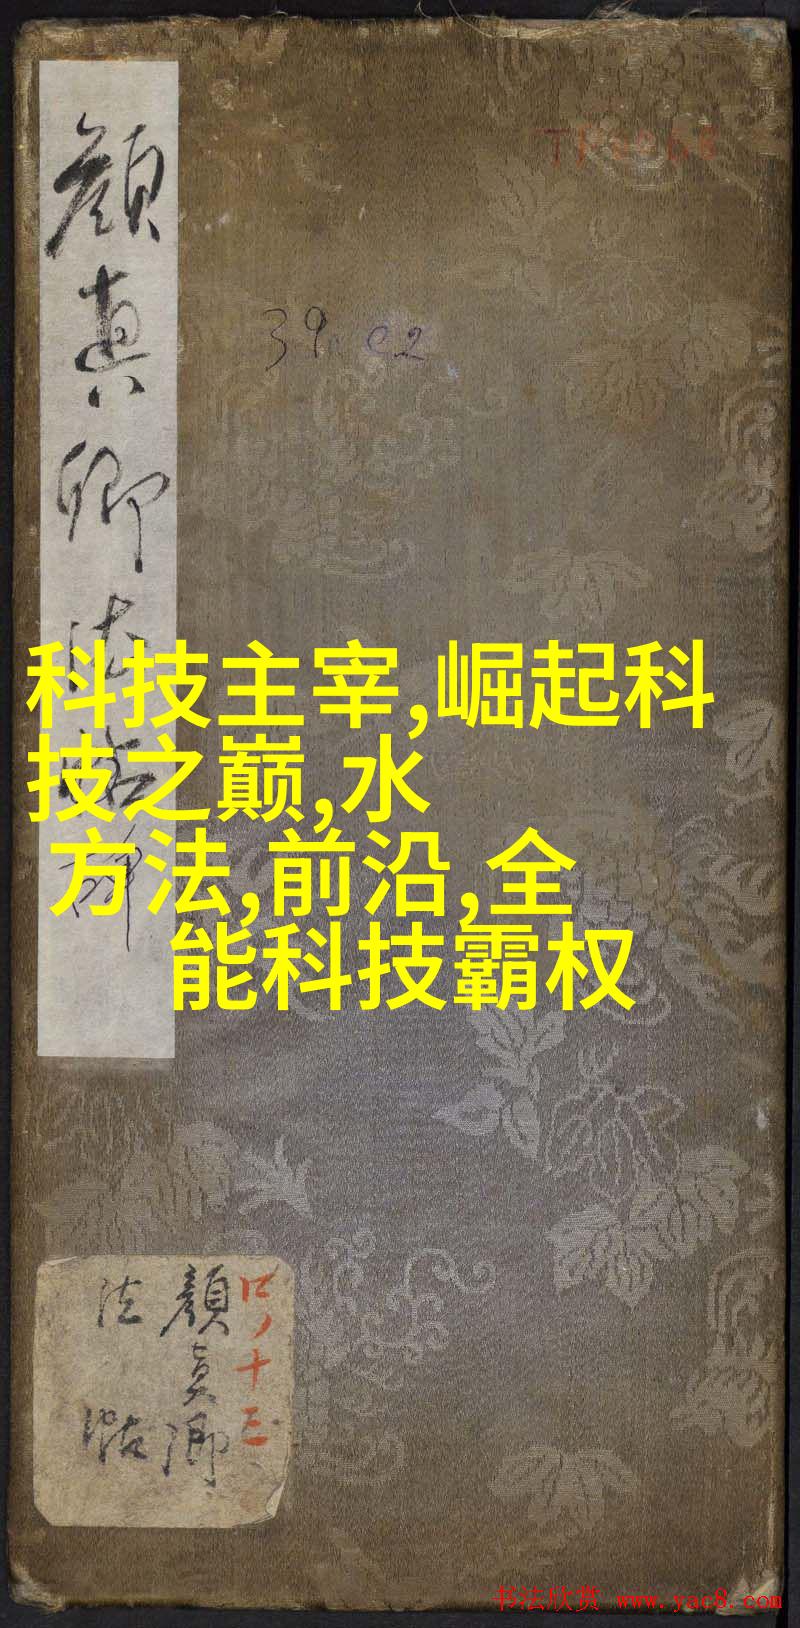 顔真卿法帖
TP
39.e2
科技主宰,崛起科
技之巅,水
方法,前沿,全
能科技霸权
口ノ十三
顔真卿
法帖
书法欣赏 www.yac8.com